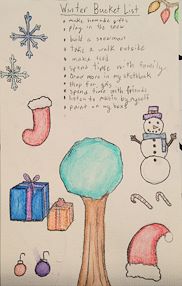 Winter Bucket List
- make homemade gifts
- play in the snow
- build a snowman
- take a walk outside
- make food
- spend time with family
- draw more in my sketchbook
- shop for gifts
- spend time with friends
- listen to music by myself
- paint on my box